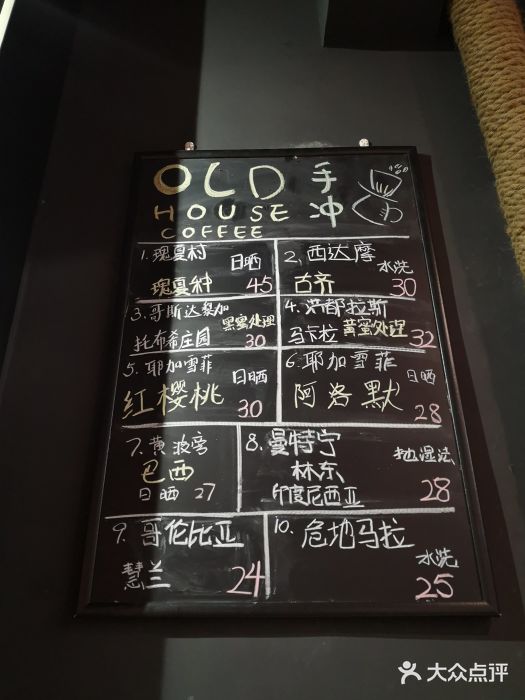 OLD 手
HOUSE 冲
COFFEE
1. 瑰夏村 日晒
瑰夏种 45
2. 西达摩 水洗
古齐 30
3. 哥斯达黎加 黑蜜处理
托布希庄园 30
4. 洪都拉斯
马卡拉 黄蜜处理 32
5. 耶加雪菲 日晒
红樱桃 30
6. 耶加雪菲 日晒
阿洛默 28
7. 黄波旁
巴西
日晒 27
8. 曼特宁
林东 湿法
印度尼西亚 28
9. 哥伦比亚
慧兰 24
10. 危地马拉
水洗
25
大众点评